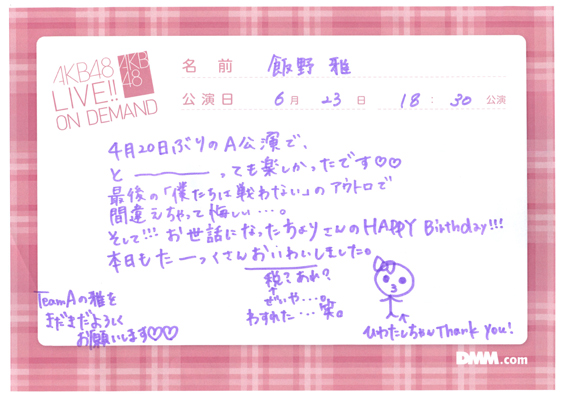 AKB48
LIVE!!
ON DEMAND
AKB
48
名前 飯野 雅
公演日 6月 23日 18:30 公演
4月20日ぶりのA公演で、
と――っても楽しかったです♡♡
最後の「僕たちは戦わない」のアウトロで
間違えちゃって悔しい…。
そして!!! お世話になったちよりさんのHAPPY Birthday!!!
本日もた―っくさんおいわいしました。
祝?あれ?
わすれた…笑。
TeamAの雅を
まだまだよろしく
お願いします♡♡
ひわたしちゃん Thank you!
DMM.com